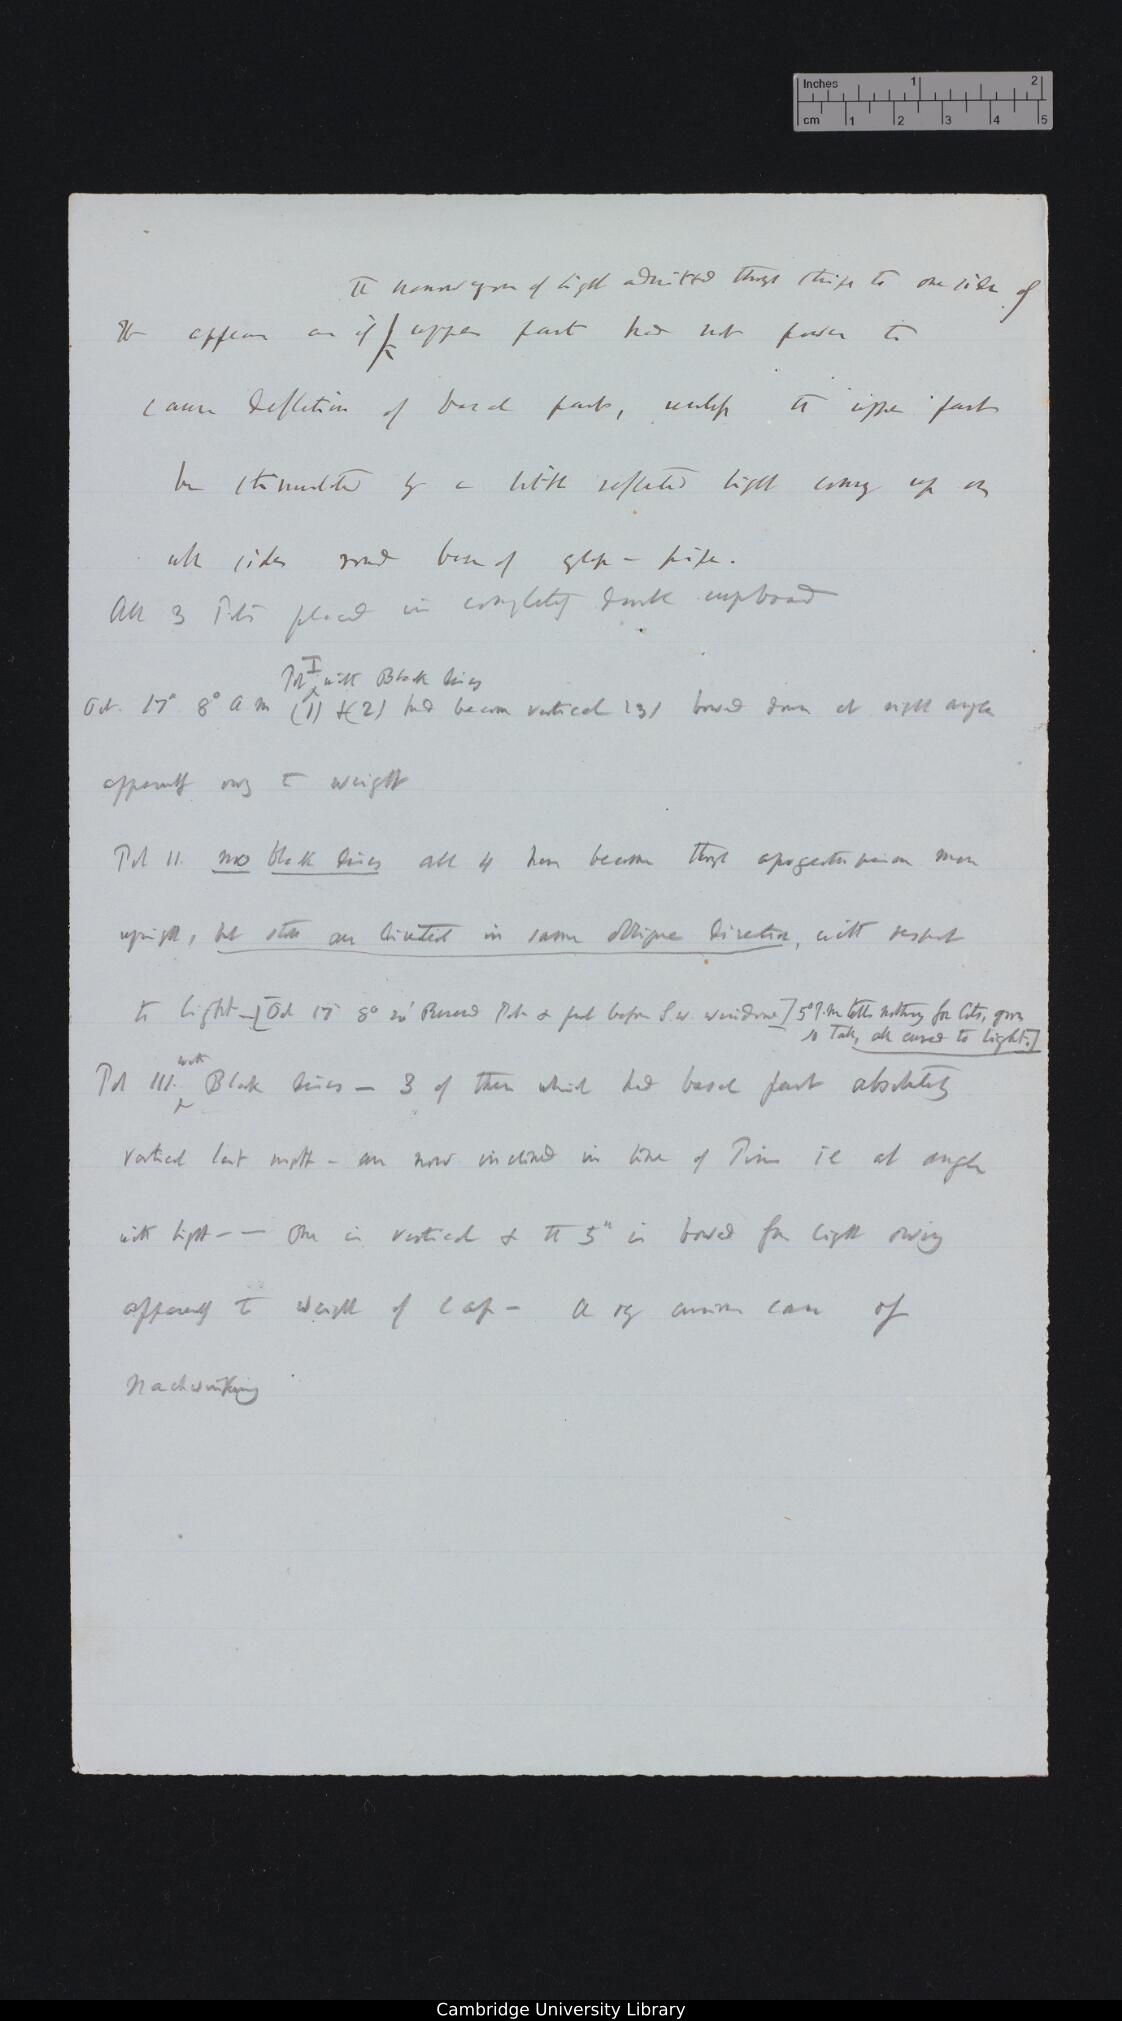 Inches 1 2
cm 1 2 3 4 5
of light admitted through stripe to one side of
It appears as if upper part had not power to
cause deflection of basal part, unless the upper part
be stimulated by a little reflected light coming up on
all sides round base of glass-pipe.
All 3 Pots placed in completely dark cupboard
Pot I with Black lines
Oct. 17° 8° a m (1) + (2) had become vertical (3) bowed down at right angle
apparently owing to weight
Pot II. no black lines all 4 have become through apogeotropism more
upright, but still are directed in same oblique direction, with respect
to light — [Oct 17° 8° 20' Pots & put before S.W. window] 5° P.m tells nothing for
so tall, all curved to light.]
Pot III. with Black lines — 3 of them which had basal part absolutely
vertical last night — are now inclined in line of ie at angle
with light — — One is vertical & the 5th is bowed from light owing
apparently to weight of cap — A very curious case of
Nachwirkung
Cambridge University Library